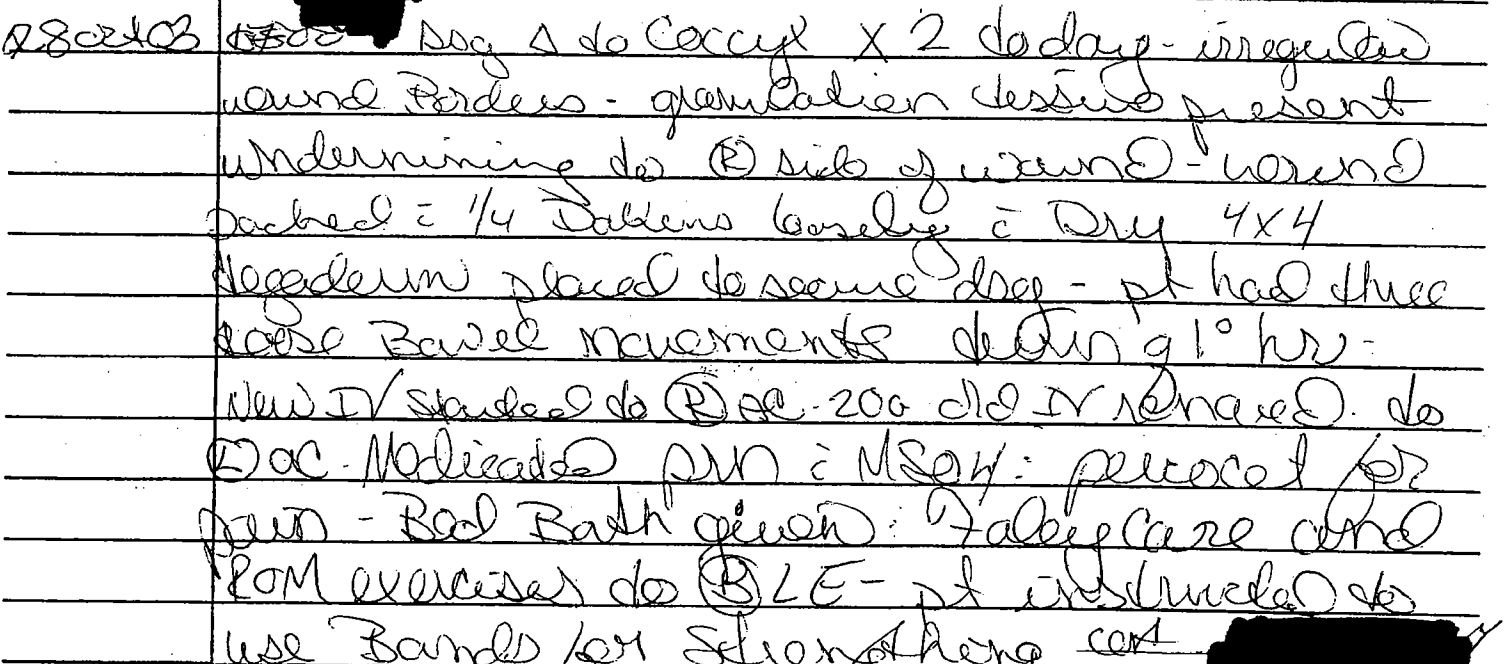 28 Oct 03 1500 Dsg Δ to Coccyx X 2 today - irregular
wound Borders - granulation tissue present
undermining to Ⓡ side of wound - wound
packed c̄ 1/4 Dakens loosely c̄ Dry 4x4
tegaderm placed to secure dsg - pt had three
loose Bowel movements during 1° hr -
New IV started to Ⓡ AC - 20G old IV removed to
Ⓛ AC - Medicated prn c̄ MSO4 : percocet for
pain - Bed Bath given : Foley Care and
ROM exercises to Ⓑ LE - pt instructed to
use Bands for strengthening